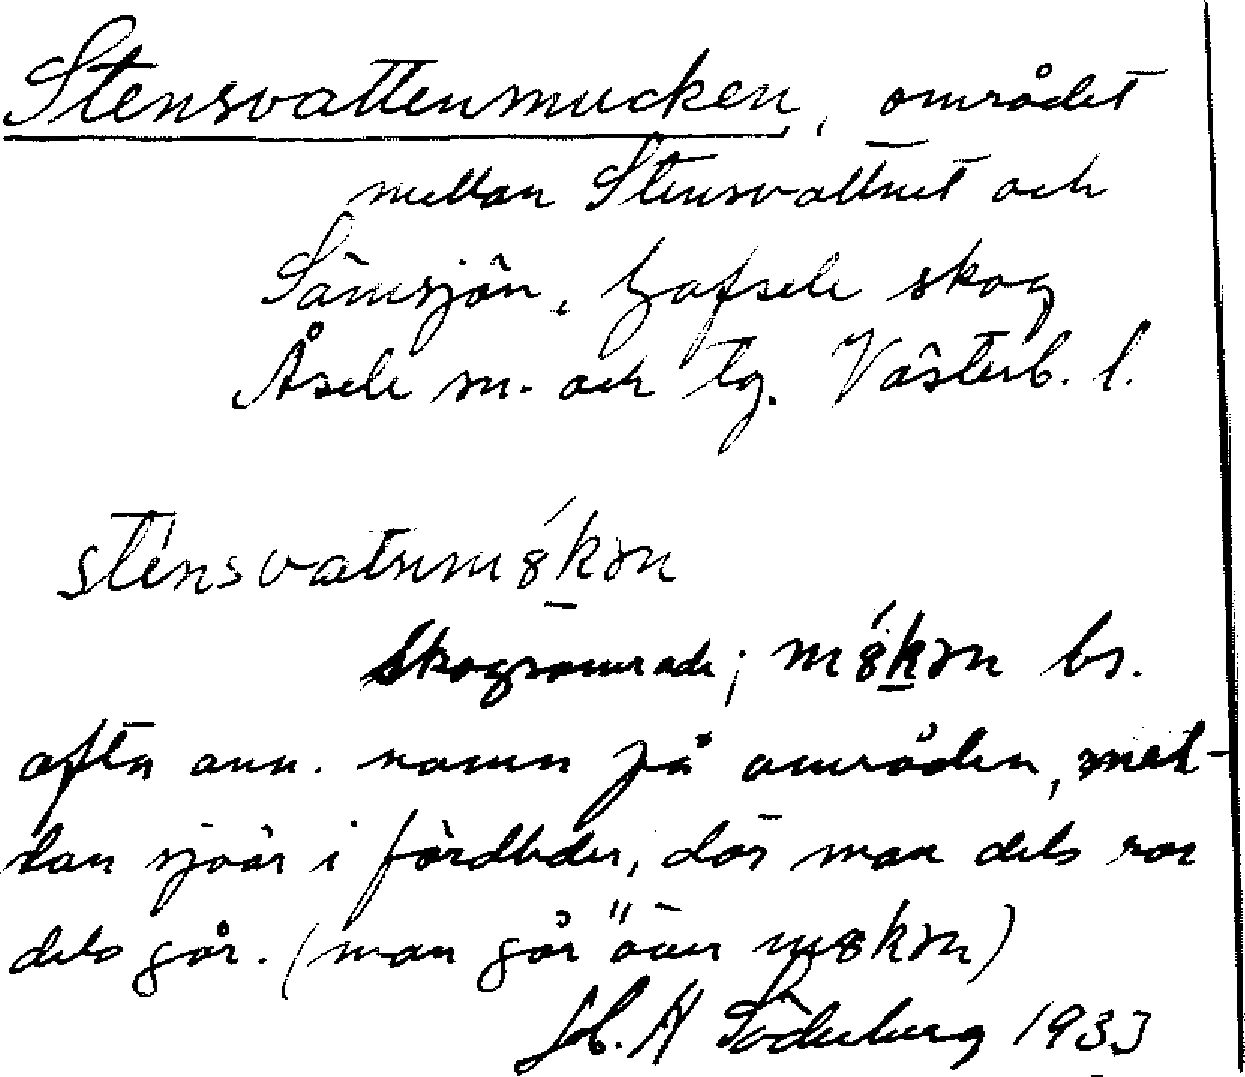 Stensvattenmucken, området
mellan Stensvattnet och
Sämsjön, Gafsele skog
Åsele sn. och tg. Västerb. l.
stensvatnm8́kən
Skogsområde; m8́kən bs.
ofta ann. namn på områden, mel-
lan sjöar i färdleder, där man dels ror
dels går. (man går "över m8kən)
H. Söderberg 1933